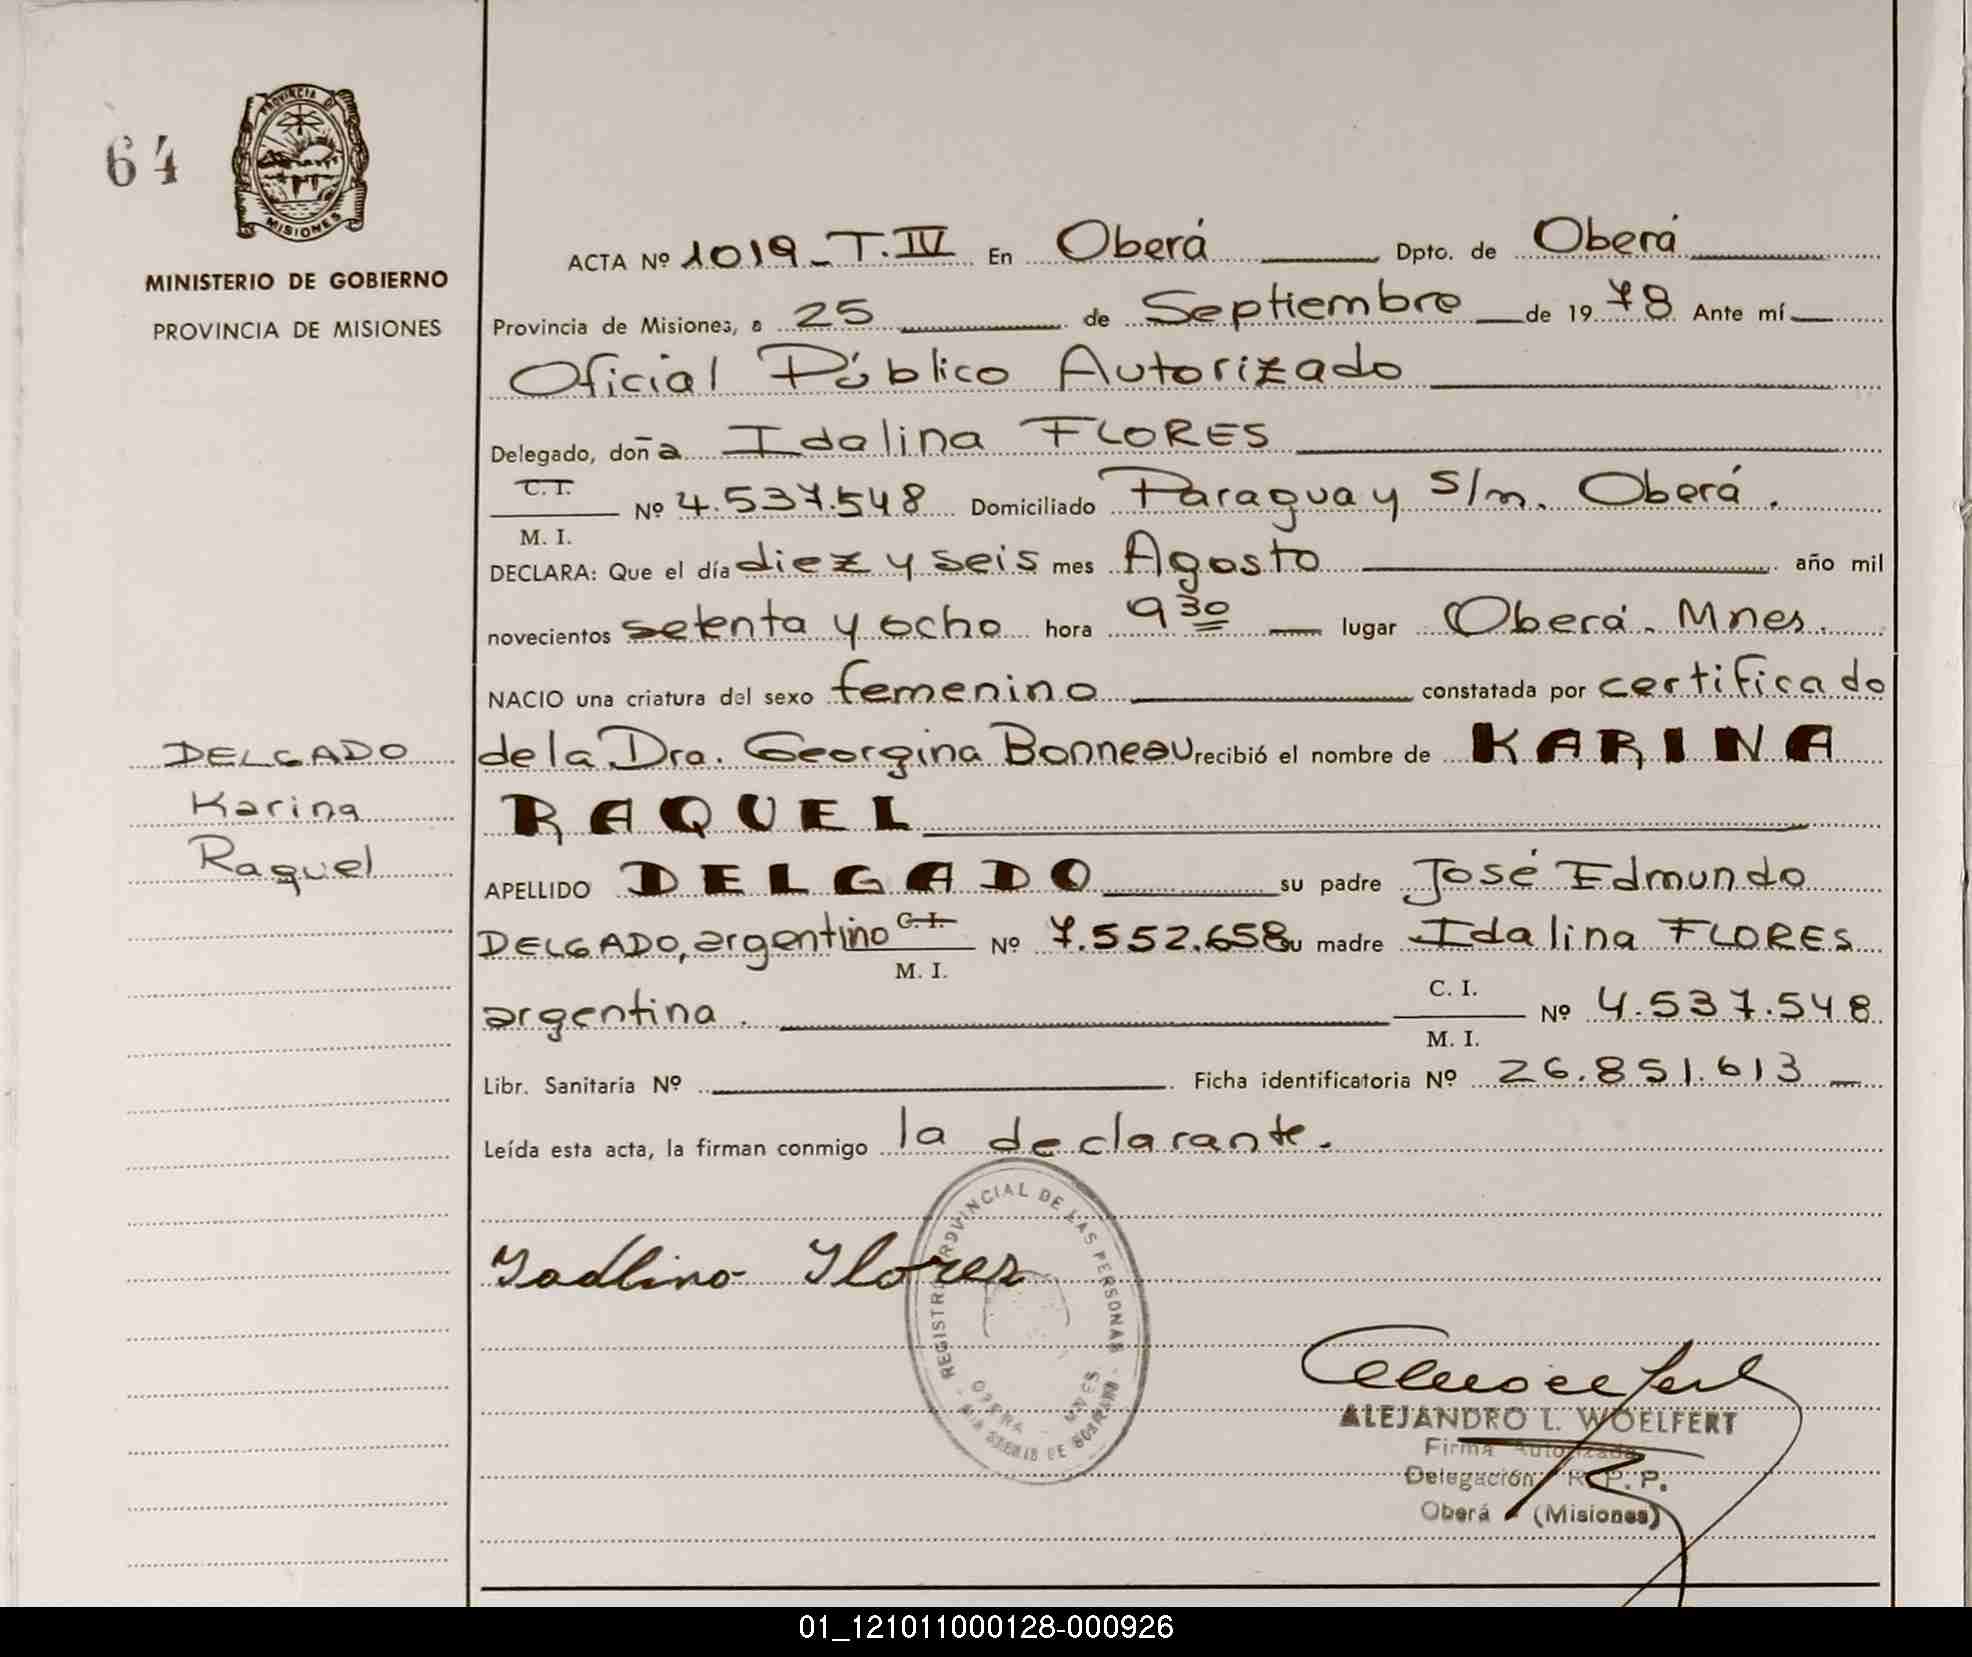 64
PROVINCIA DE
MISIONES
MINISTERIO DE GOBIERNO
PROVINCIA DE MISIONES
ACTA Nº 1019_T.IV En Oberá Dpto. de Oberá
Provincia de Misiones, a 25 de Septiembre de 1978 Ante mí
Oficial Público Autorizado
Delegado, doña Idalina FLORES
C.I.
M. I. Nº 4.537.548 Domiciliado Paraguay s/n. Oberá.
DECLARA: Que el día diez y seis mes Agosto año mil
novecientos setenta y ocho hora 9 30 lugar Oberá. Mnes.
NACIO una criatura del sexo femenino constatada por certificado
de la Dra. Georgina Bonneau recibió el nombre de KARINA
RAQUEL
APELLIDO DELGADO su padre José Edmundo
DELGADO, argentino C.I. M. I. Nº 7.552.658 su madre Idalina FLORES
argentina. C. I. M. I. Nº 4.537.548
Libr. Sanitaria Nº Ficha identificatoria Nº 26.851.613
Leída esta acta, la firman conmigo la declarante.
DELGADO
Karina
Raquel
Flores
REGISTRO PROVINCIAL DE LAS PERSONAS
OBERA MNES
ALEJANDRO L. WOELFERT
Firma Autorizada
Delegación R. P. P.
Oberá (Misiones)
01_121011000128-000926